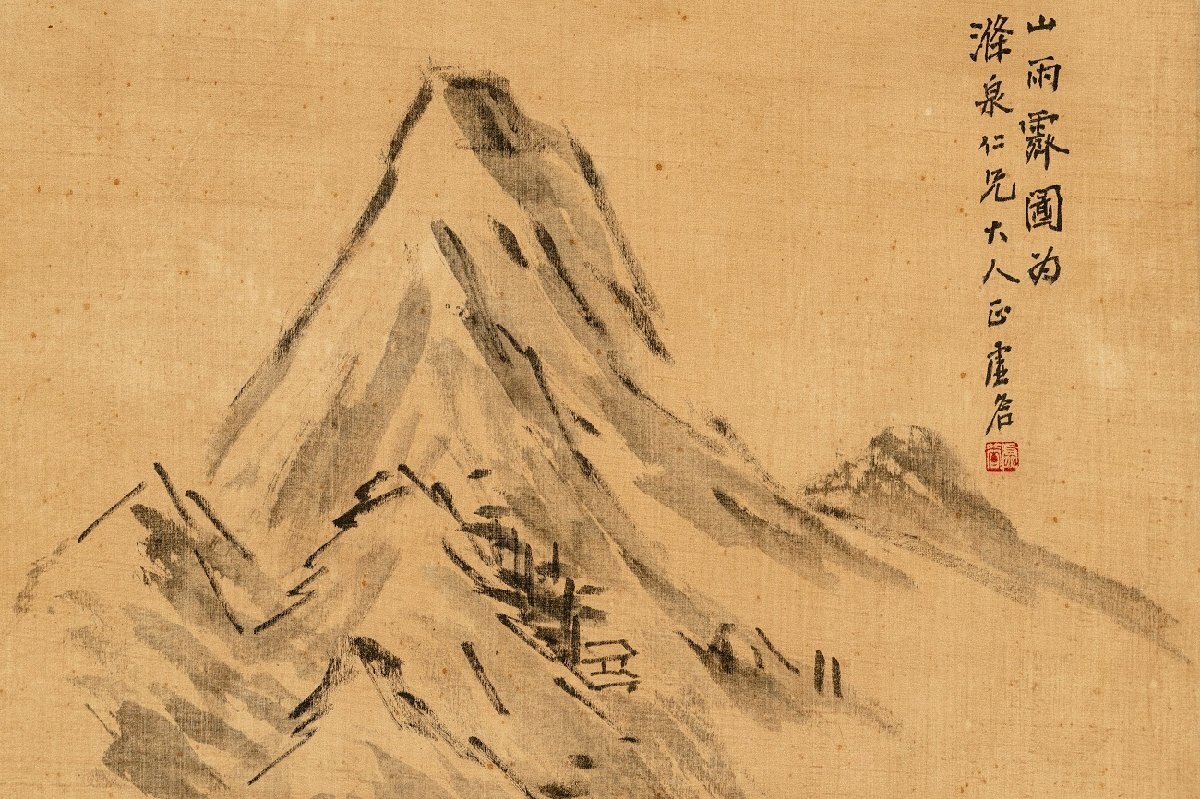 山雨霽圖为
滌泉仁兄大人正虛谷